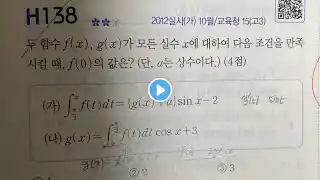 H138
2012실시(가) 10월/교육청 15(고3)
두 함수 f(x), g(x)가 모든 실수 x에 대하여 다음 조건을 만족
시킬 때, f(0)의 값은? (단, a는 상수이다.) (4점)
(가) ∫ f(t)dt={g(x)+a}sin x-2
(나) g(x)=∫ f(t)dt cos x+3
② 2 ③ 3